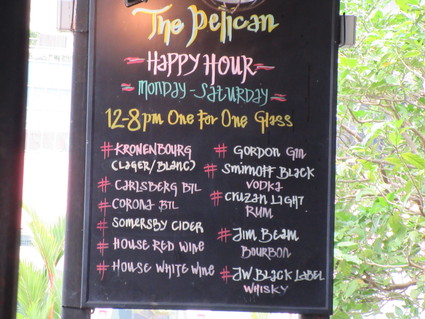 The Pelican
HAPPY HOUR
MONDAY-SATURDAY
12-8pm One For One Glass
# KRONENBOURG
(LAGER/BLANC)
# CARLSBERG BTL
# CORONA BTL
# SOMERSBY CIDER
# HOUSE RED WINE
# HOUSE WHITE WINE
# GORDON GIN
# SMIRNOFF BLACK
VODKA
# CRUZAN LIGHT
RUM
# JIM BEAM
BOURBON
# JW BLACK LABEL
WHISKY